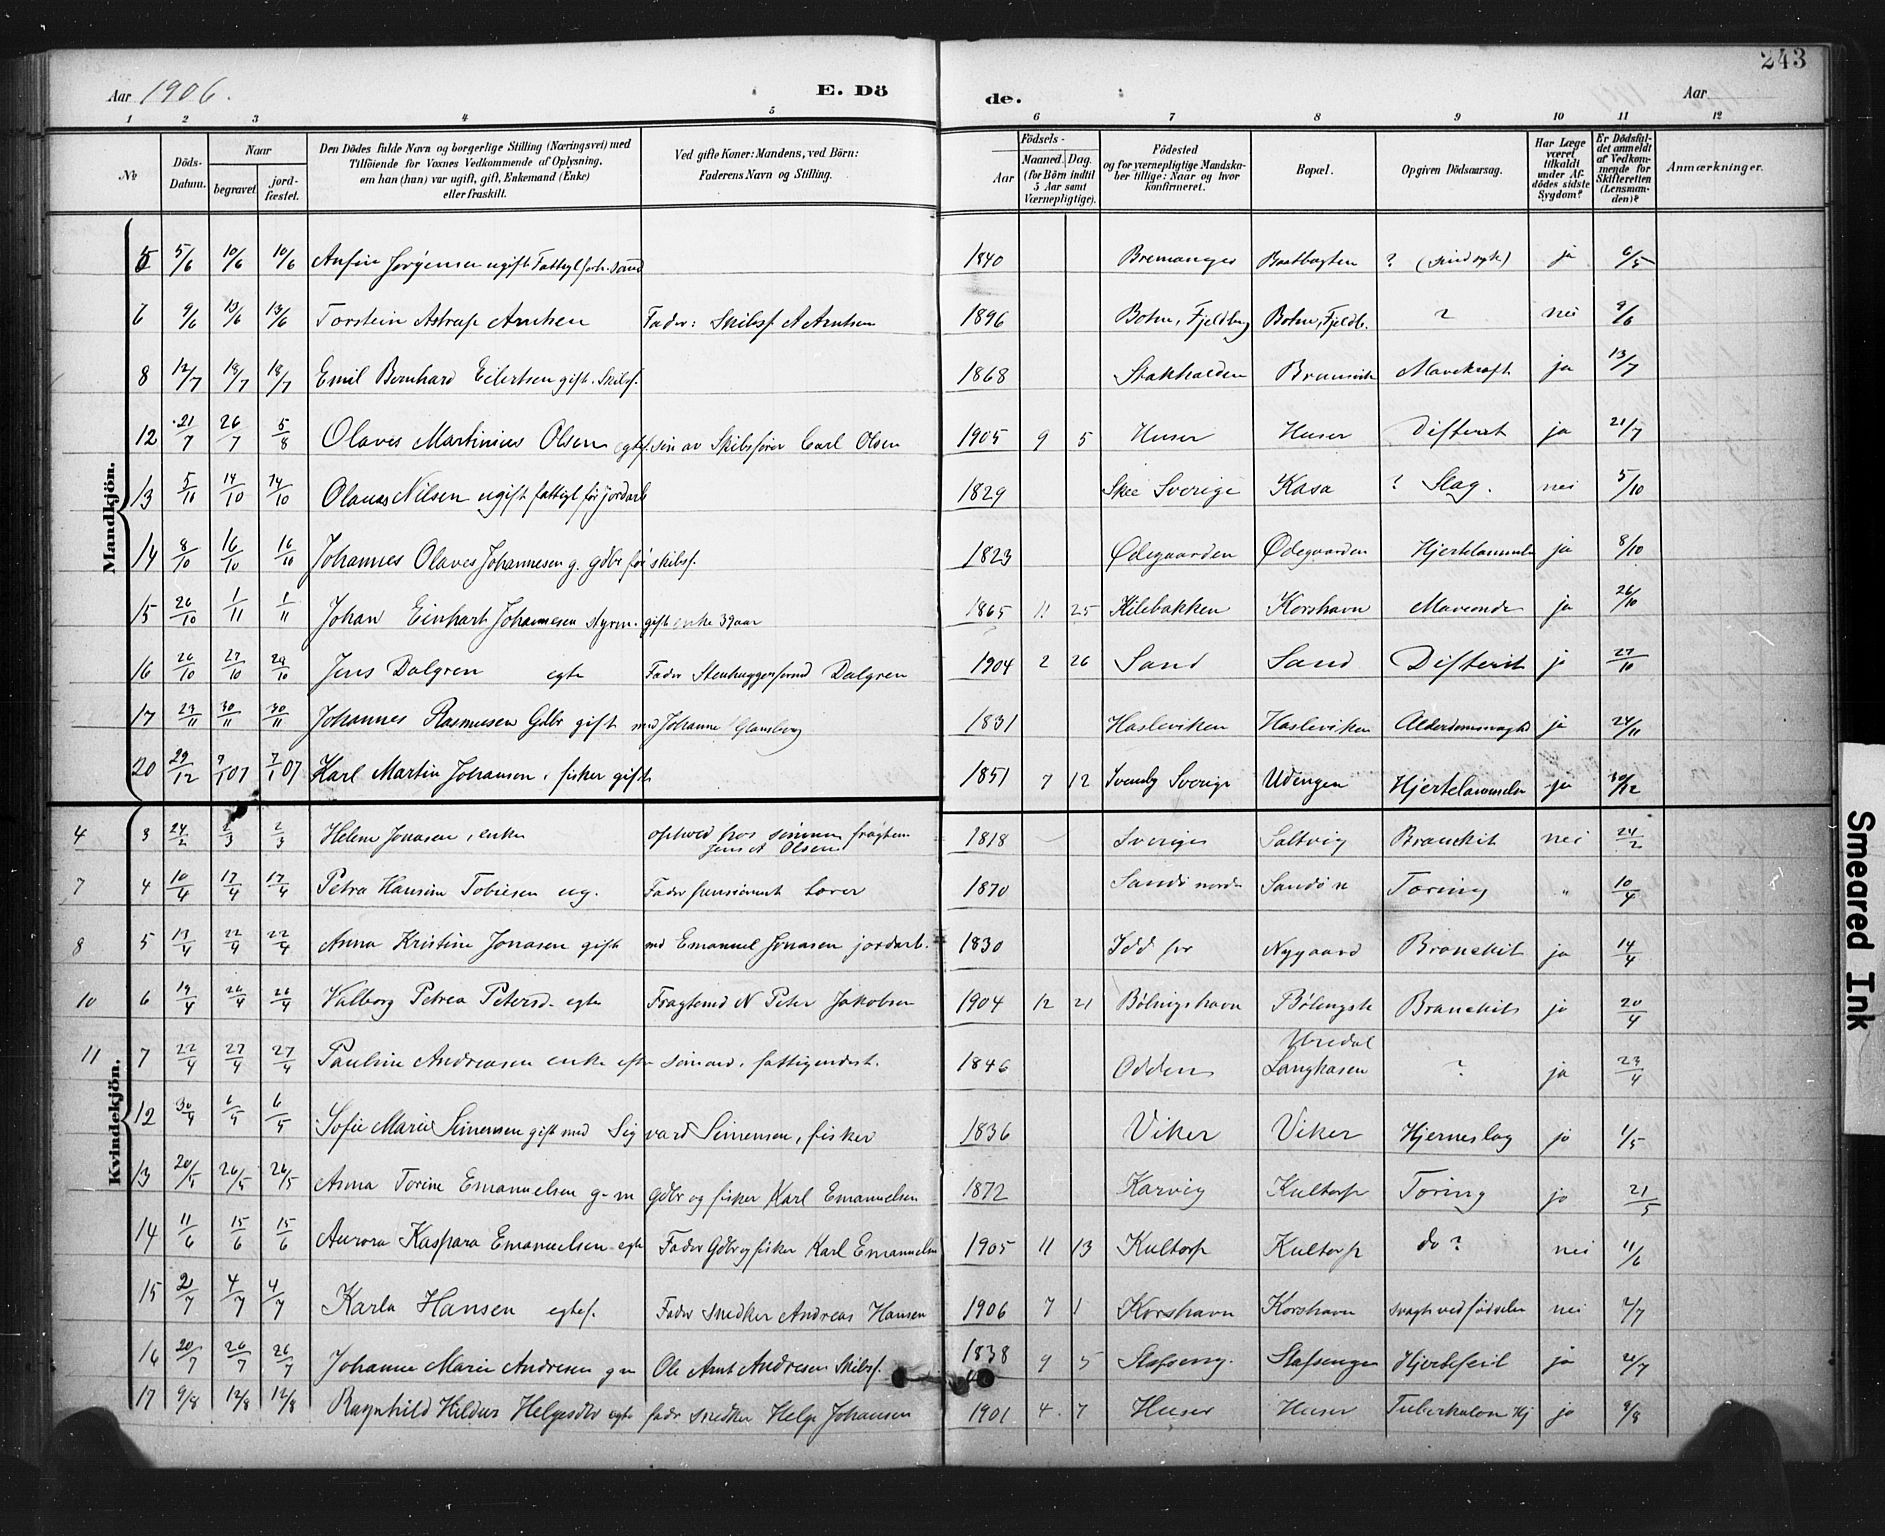 243
Aar 1906. E. Döde. Aar
1 2 3 4 5 6 7 8 9 10 11 12
No
Döds-Datum.
Naar begravet. jordfæstet.
Den Dödes fulde Navn og borgerlige Stilling (Næringsvei) med Tilföiende for Voxnes Vedkommende af Oplysning, om han (hun) var ugift, gift, Enkemand (Enke) eller fraskilt.
Ved gifte Koner: Mandens, ved Börn: Faderens Navn og Stilling.
Födsels- Aar Maaned. Dag. (for Börn indtil 5 Aar samt Værnepligtige).
Födested og for værnepligtige Mandskaber tillige: Naar og hvor konfirmeret.
Bopæl.
Opgiven Dödsaarsag.
Har Læge været tilkaldt under Afdödes sidste Sygdom?
Er Dödsfaldet anmeldt af Vedkommende for Skifteretten (Lensmanden)?
Anmærkninger.
Mandkjön.
5 5/6 10/6 10/6 Anfin Jørgensen ugift Fattigl forh. sømd 1840 Bremanger ? (sindssyk) ja 6/5
6 9/6 13/6 13/6 Torstein Astrup Arntsen Fader: Skibsf A Arntsen 1896 ? nei 9/6
8 12/7 18/7 18/7 Emil Bernhard Eilertsen gift. Skibsf. 1868 Stakkalden Brunsvik Mavekræft ja 13/7
12 21/7 26/7 5/8 Olaves Martinius Olsen egtef. søn av Skibsfører Carl Olsen 1905 9 5 Huser Huser Difterit ja 21/7
13 5/10 14/10 14/10 Olaus Nilsen ugift fattigl før jordarb 1829 Skee Sverige Kasa ? Slag. nei 5/10
14 8/10 16/10 16/10 Johannes Olaves Johannesen g. gdbr før skibsf. 1823 Ødegaarden Ødegaarden Hjertelammelse ja 8/10
15 26/10 1/11 1/11 Johan Einhart Johannesen styrm. gift enke 39 aar 1865 11 25 Kilebakken Korshavn Maveonde ja 26/10
16 26/10 27/10 29/10 Jens Dalgren egte Fader Stenhuggerformd Dalgren 1904 2 26 Sand Sand Difterit ja 27/10
17 23/11 30/11 30/11 Johannes Rasmusen Gdbr gift med Johanne Glansborg 1831 Hasleviken Hasleviken Alderdomssvaghd ja 24/11
20 29/12 7/1 07 7/1 07 Karl Martin Johansen, fisker gift 1851 7 12 Svenby Sverige Udengen Hjertelammelse ja 30/12
Kvindekjön.
4 3 24/2 2/3 2/3 Helene Jonasen, enke ophold hos sønnen fragtem Jens A Olsen 1818 Sverige Saltvig Bronckit nei 24/2
7 4 10/4 17/4 17/4 Petra Hansine Tobiesen ug. Fader pensioneret Lærer 1870 Sandø nordre Sandø n Tæring " 10/4
8 5 13/4 22/4 22/4 Anna Kristine Jonasen gift md Emanuel Jonasen jordarb. 1830 Idd pr Nygaard Bronckit ja 14/4
10 6 19/4 26/4 26/4 Valborg Petrea Petersd. egte Fragtemd N Peter Jakobsen 1904 12 21 Bølingshavn Bølingsh Bronckits ja 20/4
11 7 22/4 27/4 27/4 Pauline Andreasen enke efter sømand, fattigunderst. 1846 Odden Uredal Langhasen ? ja 23/4
12 30/4 6/5 6/5 Sofie Marie Simensen gift med Sigvard Simensen, fisker 1836 Viker Viker Hjerneslag ja 1/5
13 20/5 26/5 26/5 Anna Torine Emanuelsen g. m Gdbr og fisker Karl Emanuelsen 1872 Karvig Kultorp Tæring ja 21/5
14 11/6 15/6 15/6 Aurora Kaspara Emanuelsen egte Fader Gdbr og fisker Karl Emanuelsen 1905 11 13 Kultorp Kultorp do ? nei 11/6
15 2/7 4/7 4/7 Karla Hansen egtef. Fader snedker Andreas Hansen 1906 7 1 Korshavn Korshavn svagh ved fødselen nei 2/7
16 20/7 26/7 26/7 Johanne Marie Andresen g m Ole Arnt Andresen Skibsf. 1838 9 5 Stafseng. Stafsengen Hjertefeil ja 21/7
17 9/8 12/8 12/8 Ragnhild Hildur Helgesdtr egte fadr snedker Helge Johansen 1901 4 7 Huser Huser Tuberkuløn Hj ja 9/8
Smeared Ink